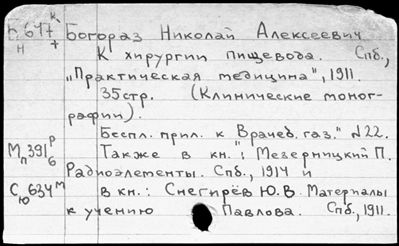 Б647 к Богораз Николай Алексеевич
Н т К хирургии пищевода. Спб.,
„Практическая медицина", 1911.
35стр. (Клинические моног-
рафии).
Беспл. прил. к "Врачеб. газ." №22.
Мп391 р б Также в кн.: Мезерницкий П.
Радиоэлементы. Спб., 1914 и
Сю634 м в кн.: Снегирёв Ю.В. Материалы
к учению Павлова. Спб., 1911.